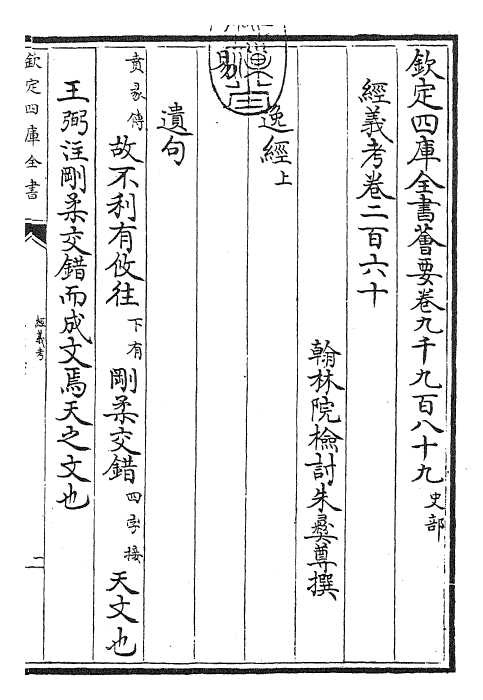 欽定四庫全書薈要卷九千九百八十九 史部
經義考卷二百六十
翰林院檢討朱彝尊撰
逸經上
易
遺句
賁彖傳 故不利有攸往 下有 剛柔交錯 四字接 天文也
王弼注剛柔交錯而成文焉天之文也
欽定四庫全書
經義考
二